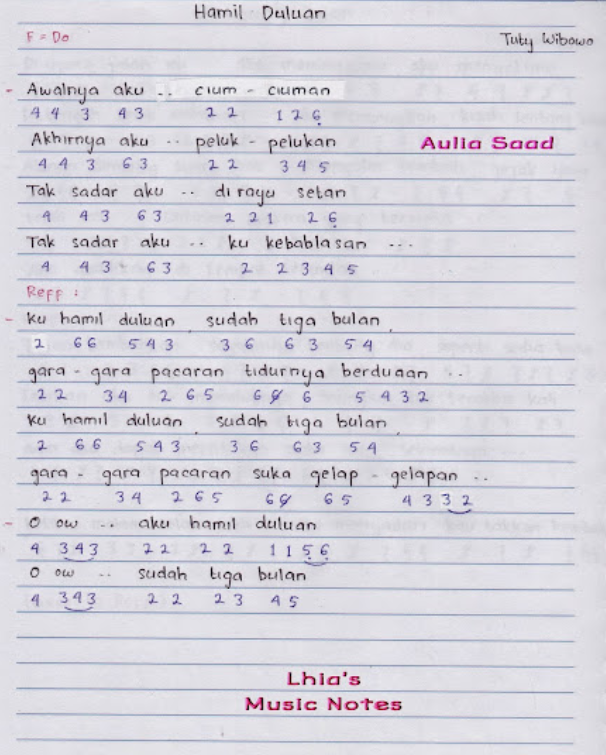 Hamil Duluan
F = Do
Tuty Wibowo
- Awalnya aku .. cium - ciuman
4 4 3 4 3 2 2 1 2 6̣
Akhirnya aku .. peluk - pelukan
4 4 3 6 3 2 2 3 4 5
Aulia Saad
Tak sadar aku .. di rayu setan
4 4 3 6 3 2 2 1 2 6̣
Tak sadar aku .. ku kebablasan ...
4 4 3 6 3 2 2 3 4 5
Reff :
- Ku hamil duluan sudah tiga bulan
2 6 6 5 4 3 3 6 6 3 5 4
gara - gara pacaran tidurnya berduaan ..
2 2 3 4 2 6 5 6 6 6 5 4 3 2
Ku hamil duluan sudah tiga bulan
2 6 6 5 4 3 3 6 6 3 5 4
gara - gara pacaran suka gelap - gelapan ..
2 2 3 4 2 6 5 6 6 6 5 4 3 3 2
- O ow aku hamil duluan
4 3 4 3 2 2 2 2 1 1 5̣ 6̣
O ow .. sudah tiga bulan
4 3 4 3 2 2 2 3 4 5
Lhia's
Music Notes